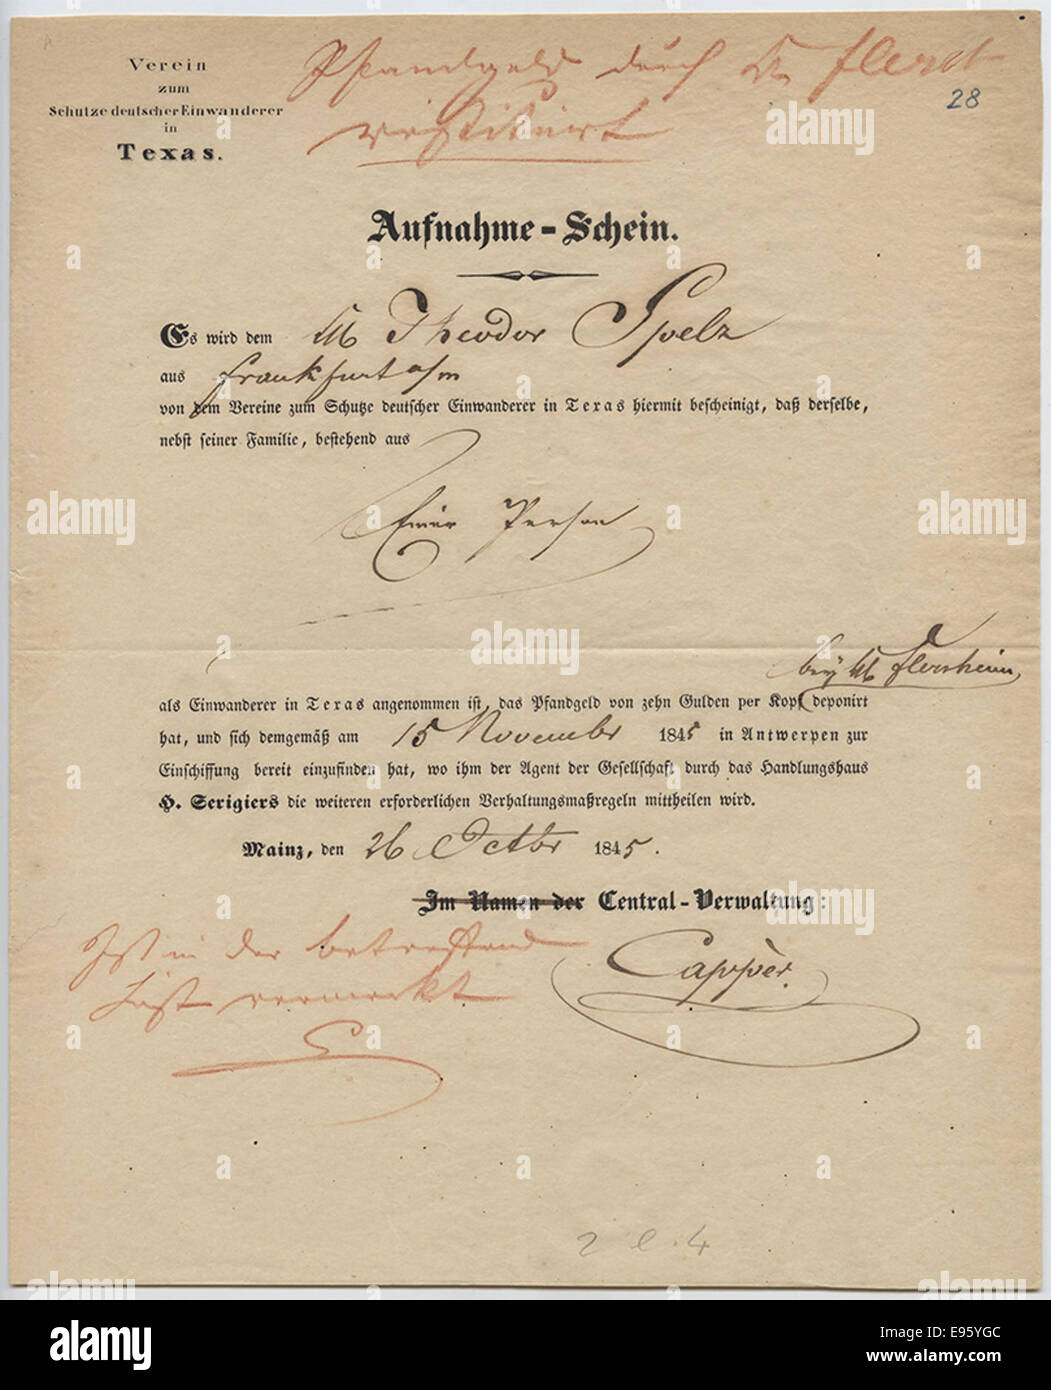 Verein
zum
Schutze deutscher Einwanderer
in
Texas.
Pfandgeld durch
restituirt
28
Aufnahme-Schein.
Es wird dem Theodor Spelz
aus Frankfurt a/m
von dem Vereine zum Schutze deutscher Einwanderer in Texas hiermit bescheinigt, daß derselbe,
nebst seiner Familie, bestehend aus
Einer Person
bey Flersheim
als Einwanderer in Texas angenommen ist, das Pfandgeld von zehn Gulden per Kopf deponirt
hat, und sich demgemäß am 15 November 1845 in Antwerpen zur
Einschiffung bereit einzufinden hat, wo ihm der Agent der Gesellschaft durch das Handlungshaus
H. Serigiers die weiteren erforderlichen Verhaltungsmaßregeln mittheilen wird.
Mainz, den 26 Octbr 1845.
Im Namen der Central-Verwaltung:
Ist in der betreffend
List vermerkt
Cappes.
2 e. 4
alamy
Image ID: E95YGC
www.alamy.com